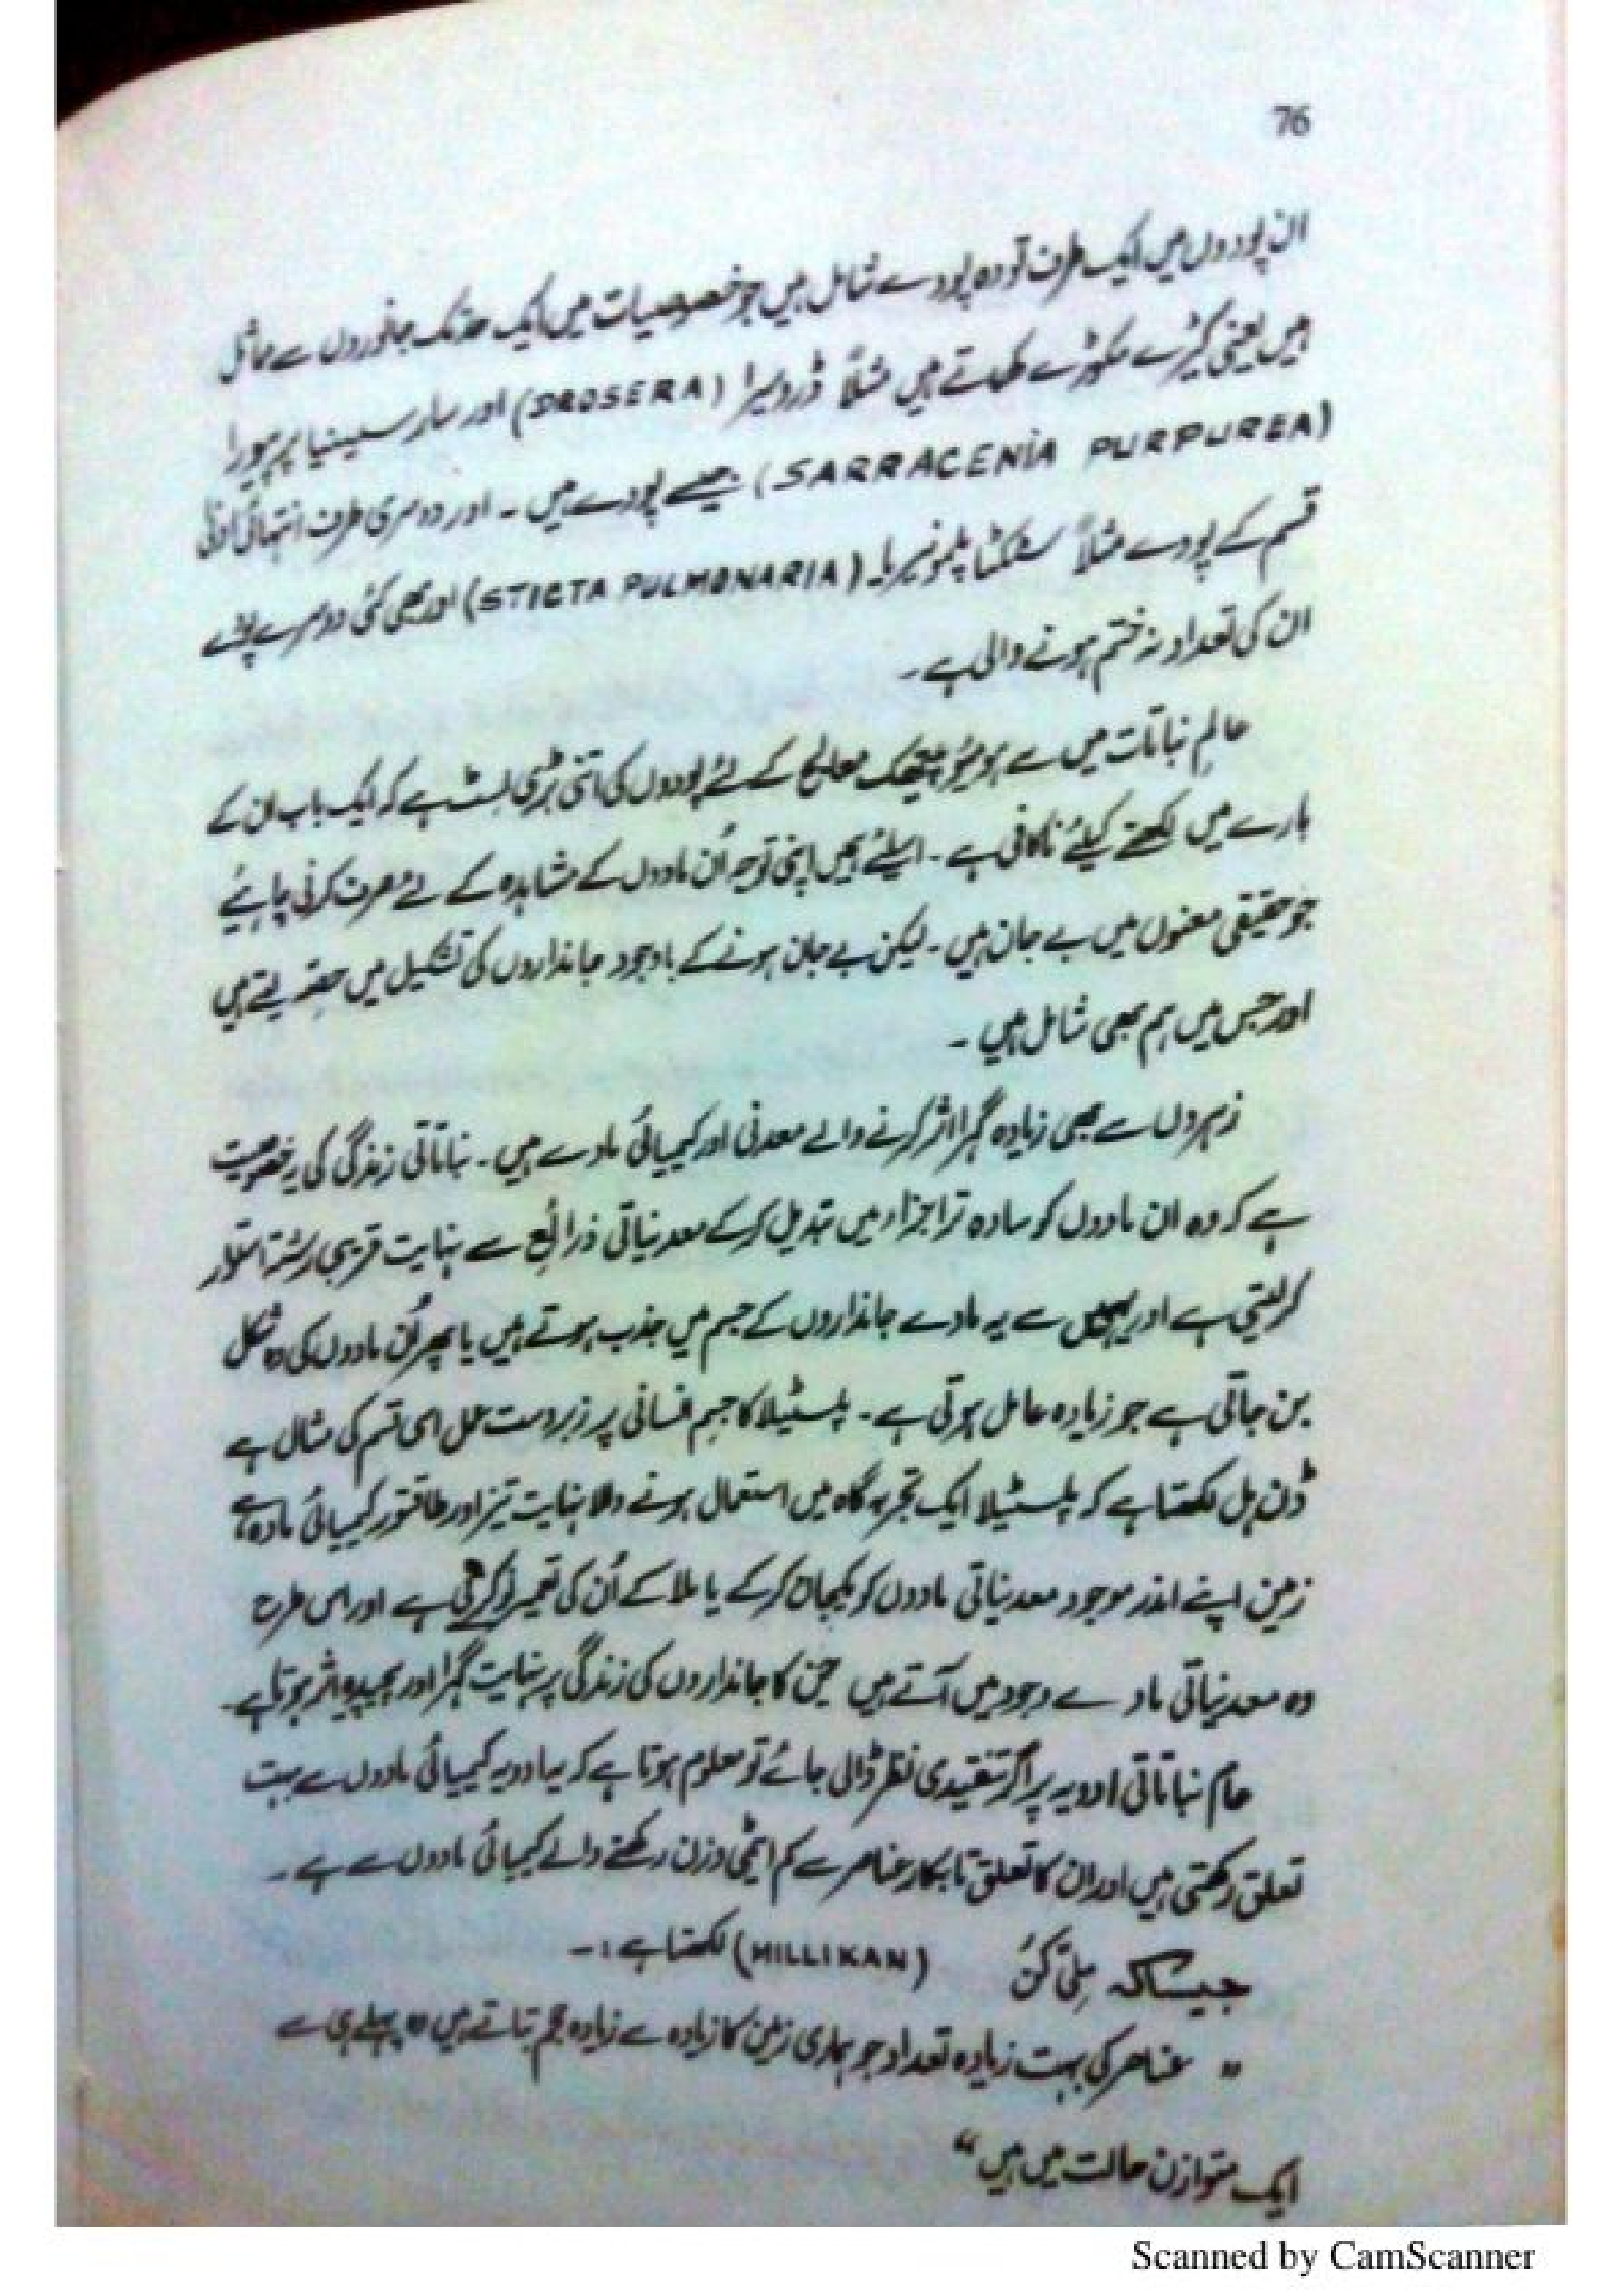 76
ان پودوں میں ایک طرف تو وہ پودے شامل ہیں جو خصوصیات میں ایک حد تک جانوروں سے مماثل
ہیں یعنی کیڑے مکوڑے کھاتے ہیں مثلاً ڈروسیرا (DROSERA) اور سارسینیا پرپیورا
(SARRACENIA PURPUREA) جیسے پودے ہیں ۔ اور دوسری طرف انتہائی ادنیٰ
قسم کے پودے مثلاً سٹکٹا پلمونیریا (STICTA PULMONARIA) اور بھی کئی دوسرے پودے
ان کی تعداد نہ ختم ہونے والی ہے ۔
عالم نباتات میں سے ہومیوپیتھک معالج کے لئے پودوں کی اتنی بڑی لسٹ ہے کہ ایک باب ان کے
بارے میں لکھنے کیلئے ناکافی ہے ۔ اسلئے ہمیں اپنی توجہ اُن مادوں کے مشاہدہ کے لئے صرف کرنی چاہئے
جو حقیقی معنوں میں بے جان ہیں ۔ لیکن بے جان ہونے کے باوجود جانداروں کی تشکیل میں حصہ لیتے ہیں
اور جس میں ہم بھی شامل ہیں ۔
زہروں سے بھی زیادہ گہرا اثر کرنے والے معدنی اور کیمیائی مادے ہیں ۔ نباتاتی زندگی کی یہ خصوصیت
ہے کہ وہ ان مادوں کو سادہ تر اجزاء میں تبدیل کر کے معدنیاتی ذرائع سے نہایت قریبی رشتہ استوار
کرلیتی ہے اور یہیں سے یہ مادے جانداروں کے جسم میں جذب ہوتے ہیں یا پھر اُن مادوں کی وہ شکل
بن جاتی ہے جو زیادہ عامل ہوتی ہے ۔ پلسٹیلا کا جسم انسانی پر زبردست عمل اسی قسم کی مثال ہے
ڈن ہل لکھتا ہے کہ پلسٹیلا ایک تجربہ گاہ میں استعمال ہونے والا نہایت تیز اور طاقتور کیمیائی مادہ ہے
زمین اپنے اندر موجود معدنیاتی مادوں کو یکجان کر کے یا ملا کے اُن کی تعمیر نو کرتی ہے اور اسی طرح
وہ معدنیاتی مادے وجود میں آتے ہیں جن کا جانداروں کی زندگی پر نہایت گہرا اور پیچیدہ اثر ہوتا ہے ۔
عام نباتاتی ادویہ پر اگر تنقیدی نظر ڈالی جائے تو معلوم ہوتا ہے کہ یہ ادویہ کیمیائی مادوں سے بہت
تعلق رکھتی ہیں اور ان کا تعلق تابکار عناصر سے کم ایٹمی وزن رکھنے والے کیمیائی مادوں سے ہے ۔
جیساکہ ملی کن (MILLIKAN) لکھتا ہے :۔
" عناصر کی بہت زیادہ تعداد جو ہماری زمین کا زیادہ سے زیادہ حجم بناتے ہیں وہ پہلے ہی سے
ایک متوازن حالت میں ہیں "
Scanned by CamScanner